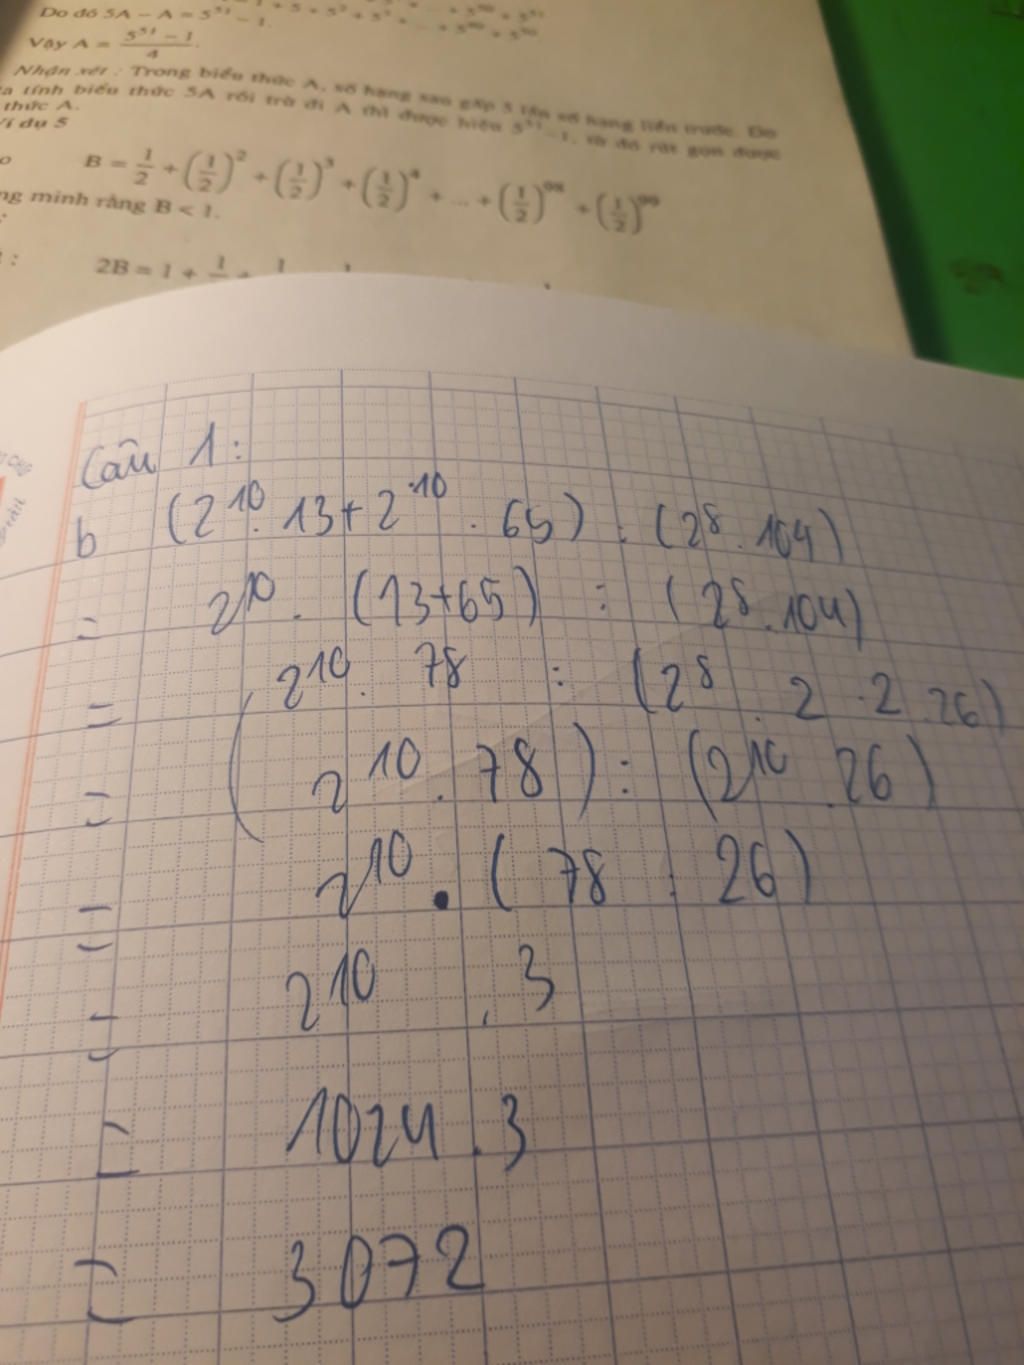 + 5 + 5² + 5³ + ... + 5⁵⁰ + 5⁵¹
Do đó 5A − A = 5⁵¹ − 1.
Vậy A = (5⁵¹ − 1)/4.
Nhận xét : Trong biểu thức A, số hạng sau gấp 5 lần số hạng liền trước. Do
a tính biểu thức 5A rồi trừ đi A thì được hiệu 5⁵¹ − 1, từ đó rút gọn được
thức A.
Ví dụ 5
o B = 1/2 + (1/2)² + (1/2)³ + (1/2)⁴ + ... + (1/2)⁹⁸ + (1/2)⁹⁹
ng minh rằng B < 1.
: 2B = 1 + 1
Câu 1:
b (2¹⁰ . 13 + 2¹⁰ . 65) : (2⁸ . 104)
= 2¹⁰ . (13+65) : (2⁸ . 104)
= 2¹⁰ . 78 : (2⁸ . 2 . 2 . 26)
= (2¹⁰ . 78) : (2¹⁰ . 26)
= 2¹⁰ . (78 : 26)
= 2¹⁰ . 3
= 1024 . 3
= 3072